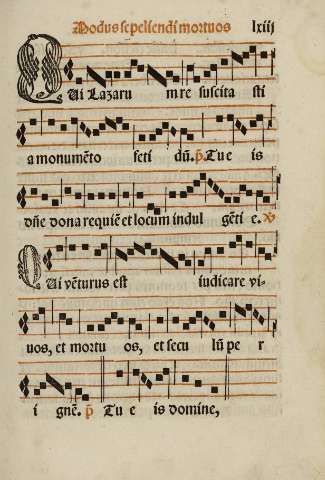 Modus sepeliendi mortuos lxiij
QUi Lazaru m re suscita sti
a monumẽto feti dũ. p̃. Tu e is
dñe dona requiẽ et locum indul gẽti e. ℣
QUi vẽturus est iudicare vi-
uos, et mortu os, et secu lũ pe r
i gnẽ. p̃ Tu e is domine,